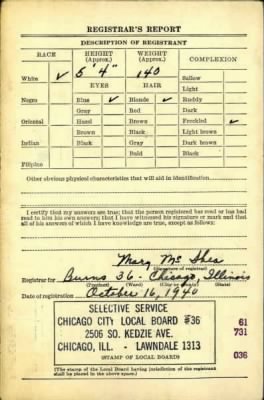 REGISTRAR'S REPORT
DESCRIPTION OF REGISTRANT
RACE HEIGHT (Approx.) WEIGHT (Approx.) COMPLEXION
White ✓ 5' 4" 140 Sallow
Light
EYES HAIR
Negro Blue ✓ Blonde ✓ Ruddy
Gray Red Dark
Oriental Hazel Brown Freckled ✓
Brown Black Light brown
Indian Black Gray Dark brown
Bald Black
Filipino
Other obvious physical characteristics that will aid in identification
I certify that my answers are true; that the person registered has read or has had
read to him his own answers; that I have witnessed his signature or mark and that
all of his answers of which I have knowledge are true, except as follows:
Mary Mc Shea
(Signature of registrar)
Registrar for Burns 36 - Chicago, Illinois
(Precinct) (Ward) (City or County) (State)
Date of registration October 16, 1940
SELECTIVE SERVICE
CHICAGO CITY LOCAL BOARD #36 61
2506 SO. KEDZIE AVE. 731
CHICAGO, ILL. - LAWNDALE 1313
(STAMP OF LOCAL BOARD) 036
(The stamp of the Local Board having jurisdiction of the registrant
shall be placed in the above space.)